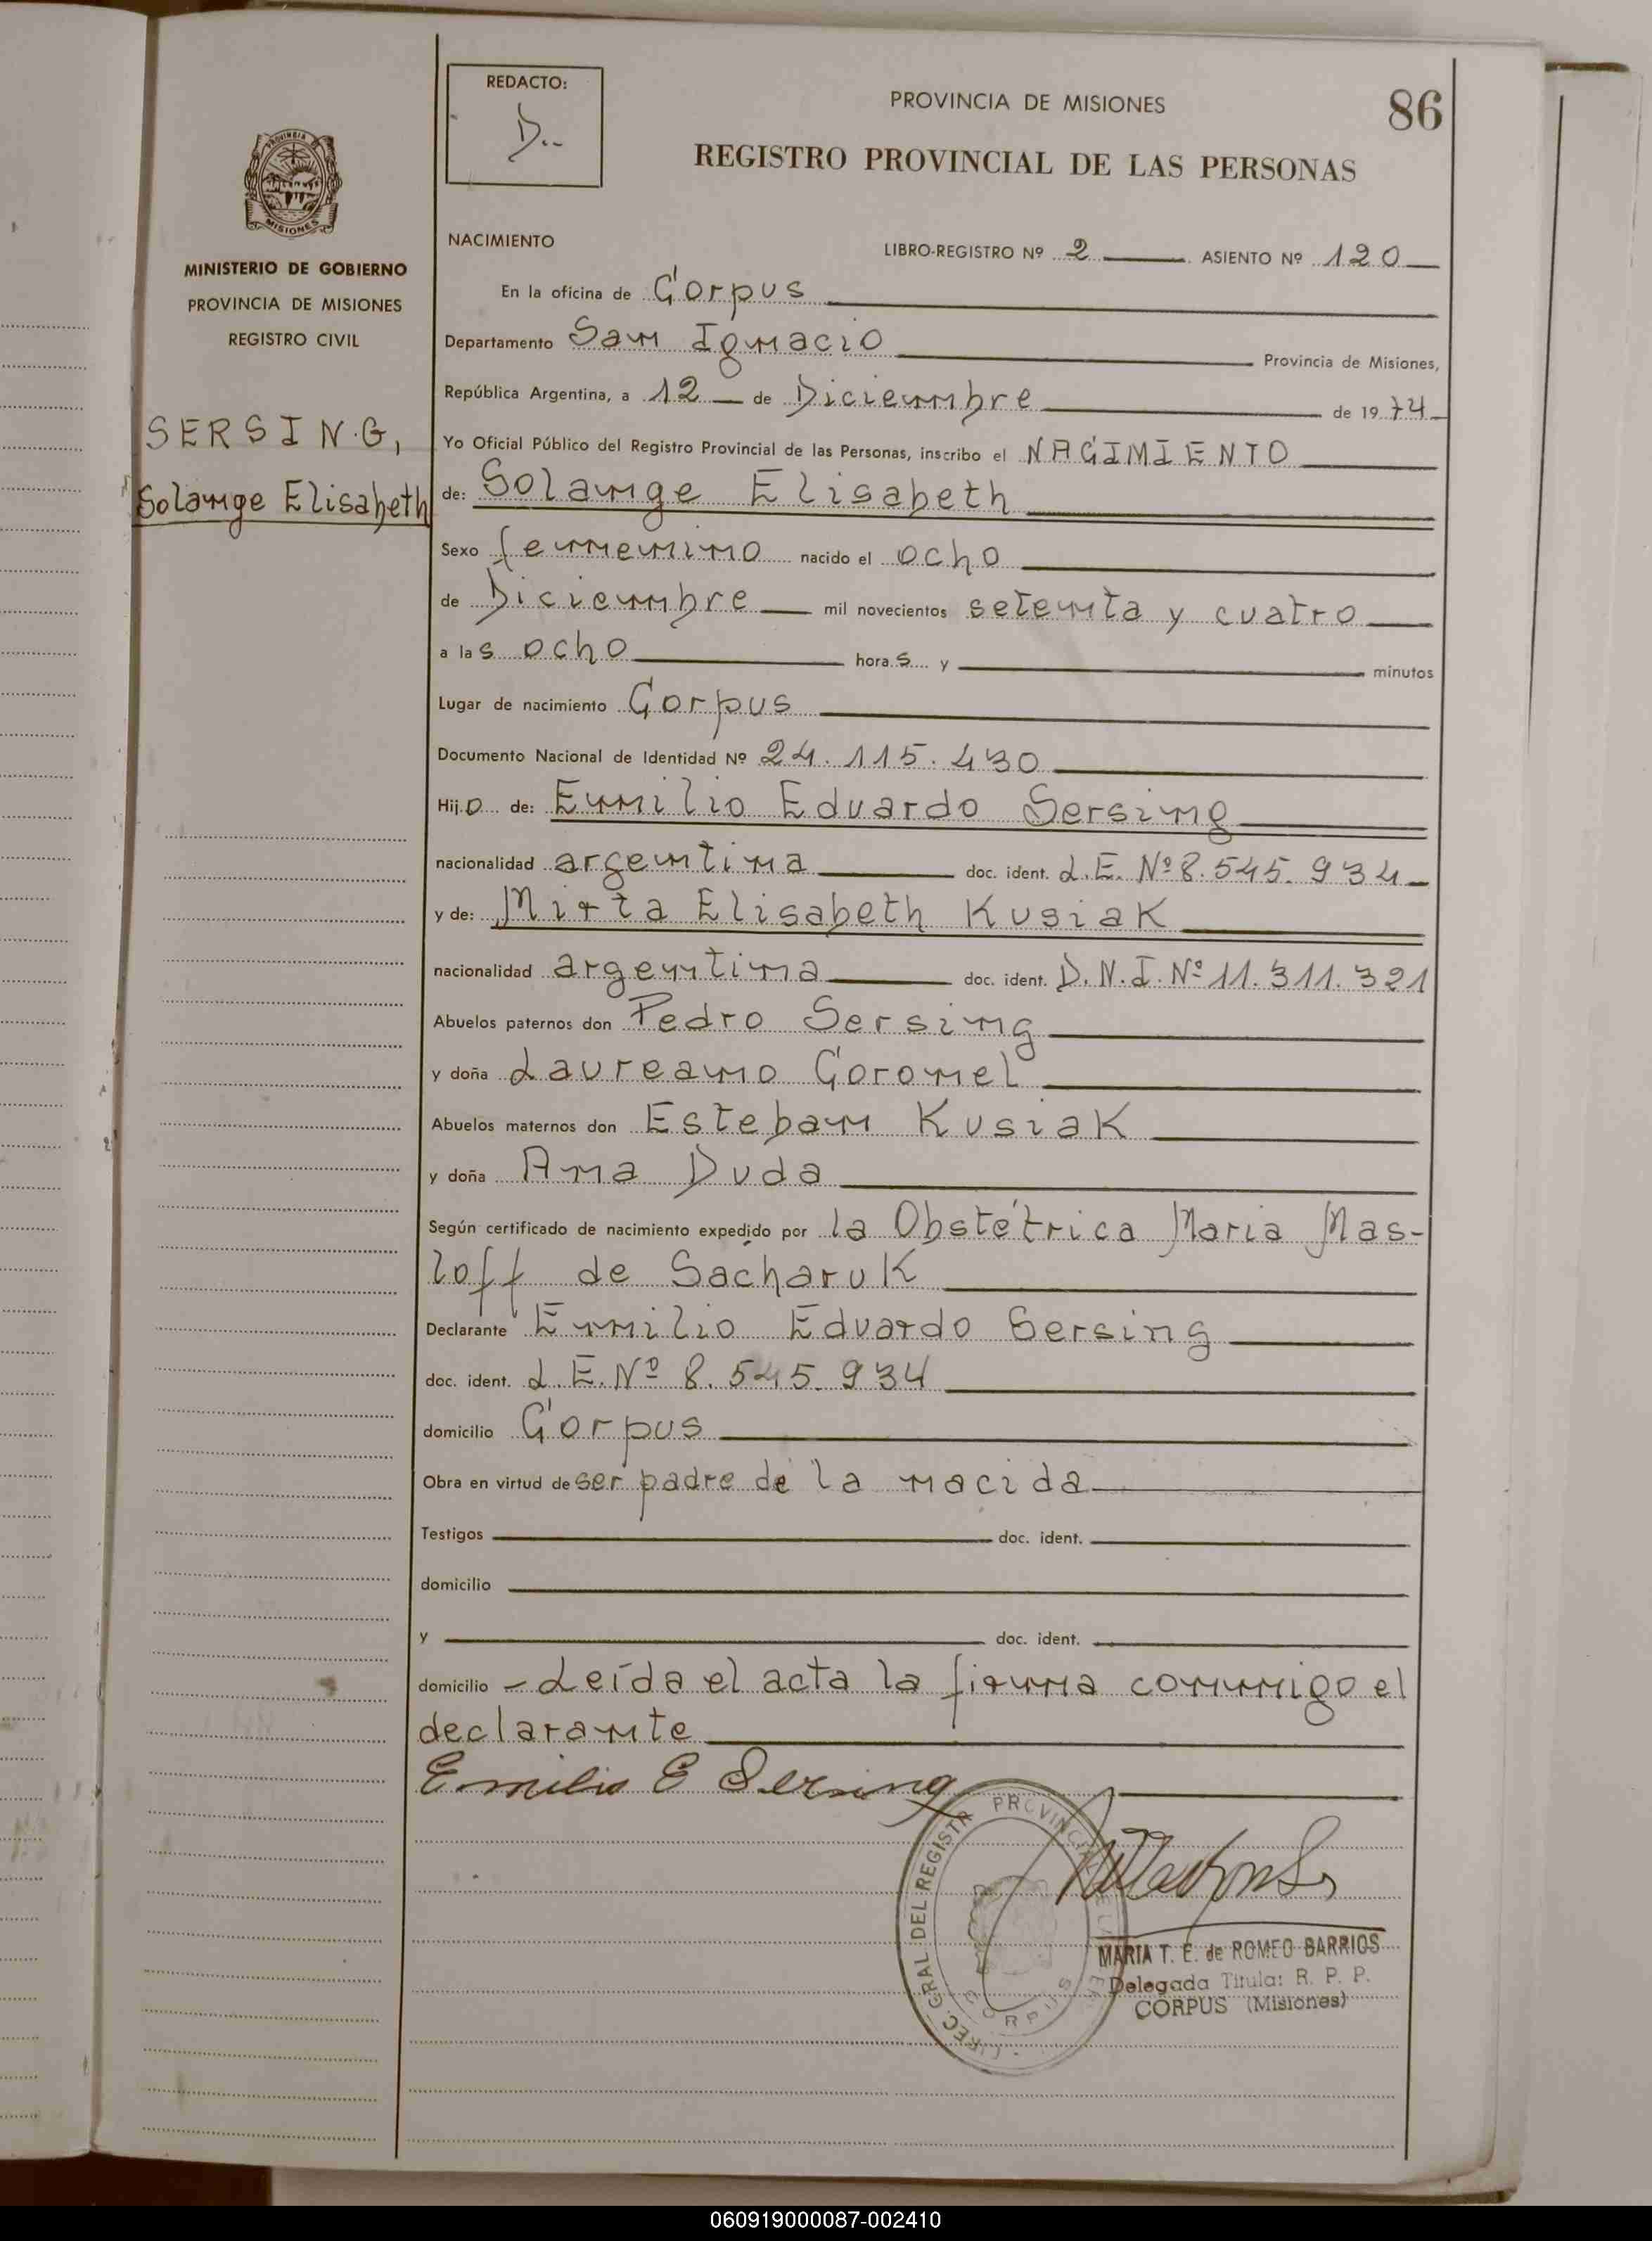 REDACTO:
D..
PROVINCIA DE MISIONES
86
REGISTRO PROVINCIAL DE LAS PERSONAS
PROVINCIA
MISIONES
MINISTERIO DE GOBIERNO
PROVINCIA DE MISIONES
REGISTRO CIVIL
SERSING,
Solange Elisabeth
NACIMIENTO LIBRO-REGISTRO Nº 2 ASIENTO Nº 120
En la oficina de Corpus
Departamento San Ignacio Provincia de Misiones,
República Argentina, a 12 de Diciembre de 1974
Yo Oficial Público del Registro Provincial de las Personas, inscribo el NACIMIENTO
de: Solange Elisabeth
Sexo femenino nacido el ocho
de Diciembre mil novecientos setenta y cuatro
a las ocho horas y minutos
Lugar de nacimiento Corpus
Documento Nacional de Identidad Nº 24.115.430
Hijo de: Emilio Eduardo Sersing
nacionalidad argentina doc. ident. L.E. Nº 8.545.934
y de: Mirta Elisabeth Kusiak
nacionalidad argentina doc. ident. D.N.I. Nº 11.311.321
Abuelos paternos don Pedro Sersing
y doña Laureano Coronel
Abuelos maternos don Esteban Kusiak
y doña Ana Duda
Según certificado de nacimiento expedido por la Obstétrica Maria Mas-
loff de Sacharuk
Declarante Emilio Eduardo Sersing
doc. ident. L.E. Nº 8.545.934
domicilio Corpus
Obra en virtud de ser padre de la nacida
Testigos doc. ident.
domicilio
y doc. ident.
domicilio - Leída el acta la firma conmigo el
declarante
Emilio E Sersing
DIREC. GRAL. DEL REGISTR PROVINCIAL DE LA
CORPUS
MARIA T. E. de ROMEO BARRIOS
Delegada Titular R. P. P.
CORPUS (Misiones)
060919000087-002410